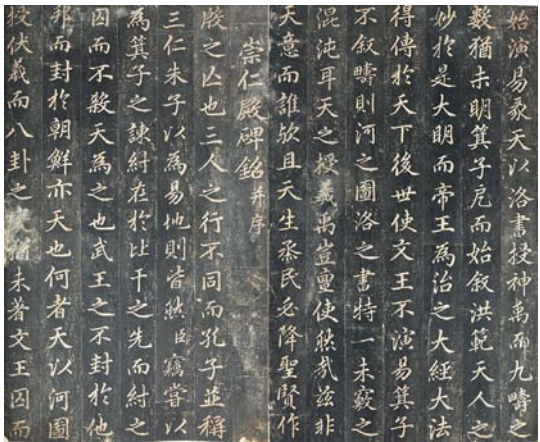 始演易彖天以洛書授神禹而九疇之
數猶未明箕子厄而始叙洪範天人之
妙於是大明而帝王為治之大經大法
得傳於天下後世使文王不演易箕子
不叙疇則河之圖洛之書特一未竅之
混沌耳天之授羲禹豈亶使然哉茲非
天意而誰欤且天生烝民必降聖賢作
崇仁殿碑銘并序
殷之亾也三人之行不同而孔子並稱
三仁朱子以為易地則皆然臣竊嘗以
為箕子之諫紂在於比干之先而紂之
囚而不殺天為之也武王之不封於他
邦而封於朝鮮亦天也何者天以河圖
授伏羲而八卦之猶未著文王囚而